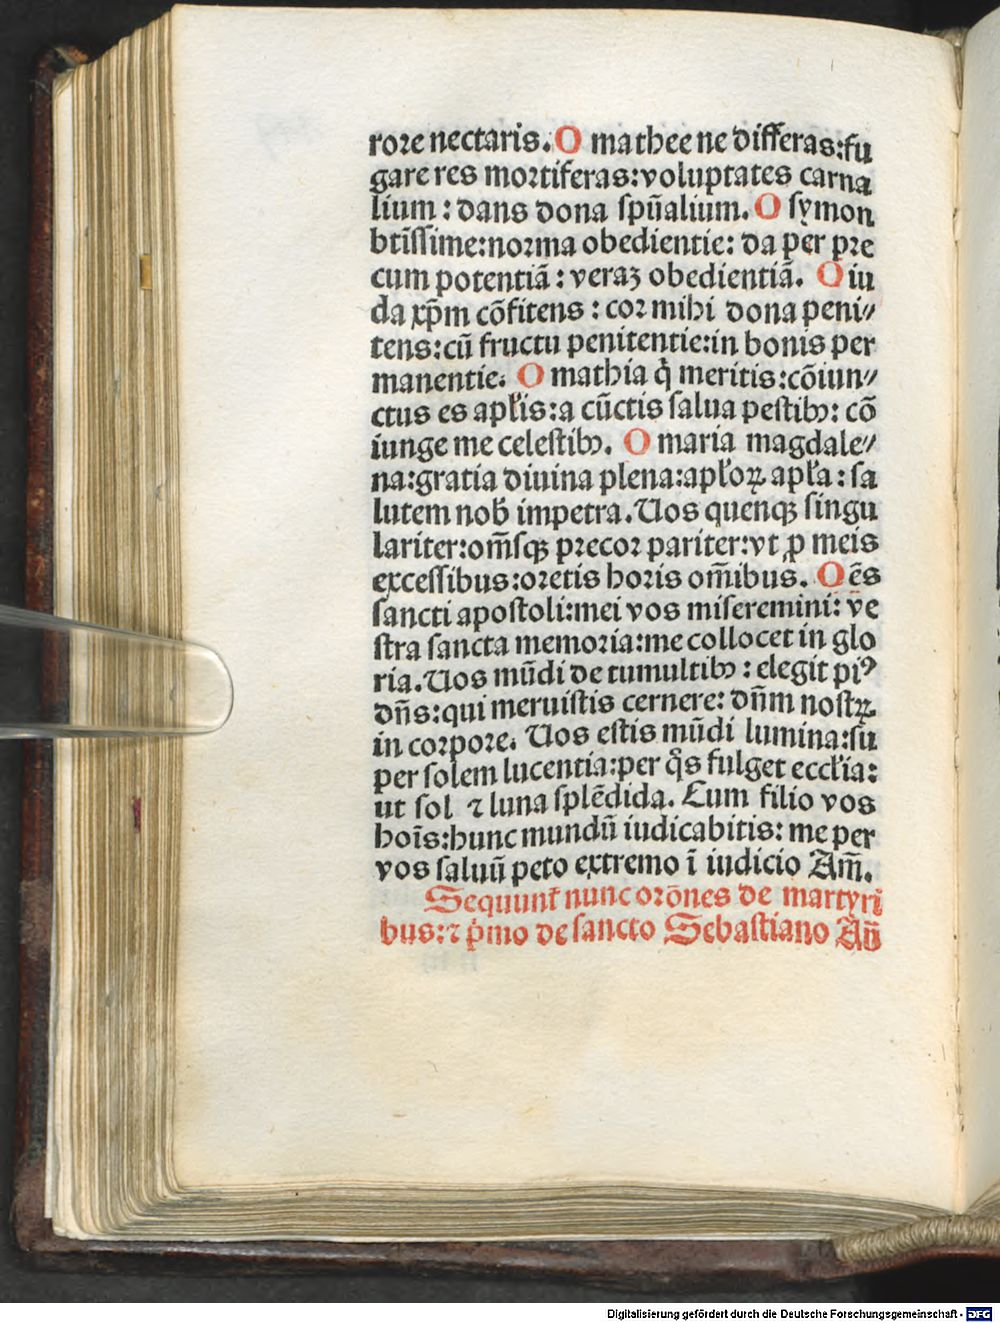 rore nectaris. O mathee ne differas:fu
gare res mortiferas:voluptates carna
lium : dans dona spūalium. O symon
btīssime:norma obedientie: da per pre
cum potentiā : veraꝫ obedientiā. O iu
da xp̄m cōfitens : cor mihi dona peni⸗
tens:cū fructu penitentie:in bonis per
manentie. O mathia q̇ meritis:cōiun⸗
ctus es apl̓is:a cūctis salua pestibꝰ: cō
iunge me celestibꝰ. O maria magdale⸗
na:gratia diuina plena:apl̓oꝝ apl̓a : sa
lutem nob̓ impetra. Uos quenqꝫ singu
lariter:om̄sqꝫ precor pariter:vt ꝓ meis
excessibus:oretis horis om̄ibus. O ēs
sancti apostoli:mei vos miseremini: ve
stra sancta memoria:me collocet in glo
ria. Uos mūdi de tumultibꝰ : elegit piꝰ
dn̄s:qui meruistis cernere: dn̄m nostꝝ
in corpore. Uos estis mūdi lumina:su
per solem lucentia:per q̊s fulget eccl̓ia:
ut sol ⁊ luna splēdida. Cum filio vos
hoīs:hunc mundū iudicabitis: me per
vos saluū peto extremo ī iudicio Am̄.
Sequunt᷑ nunc orōnes de martyri
bus:⁊ p̓mo de sancto Sebastiano Añ
Digitalisierung gefördert durch die Deutsche Forschungsgemeinschaft - DFG